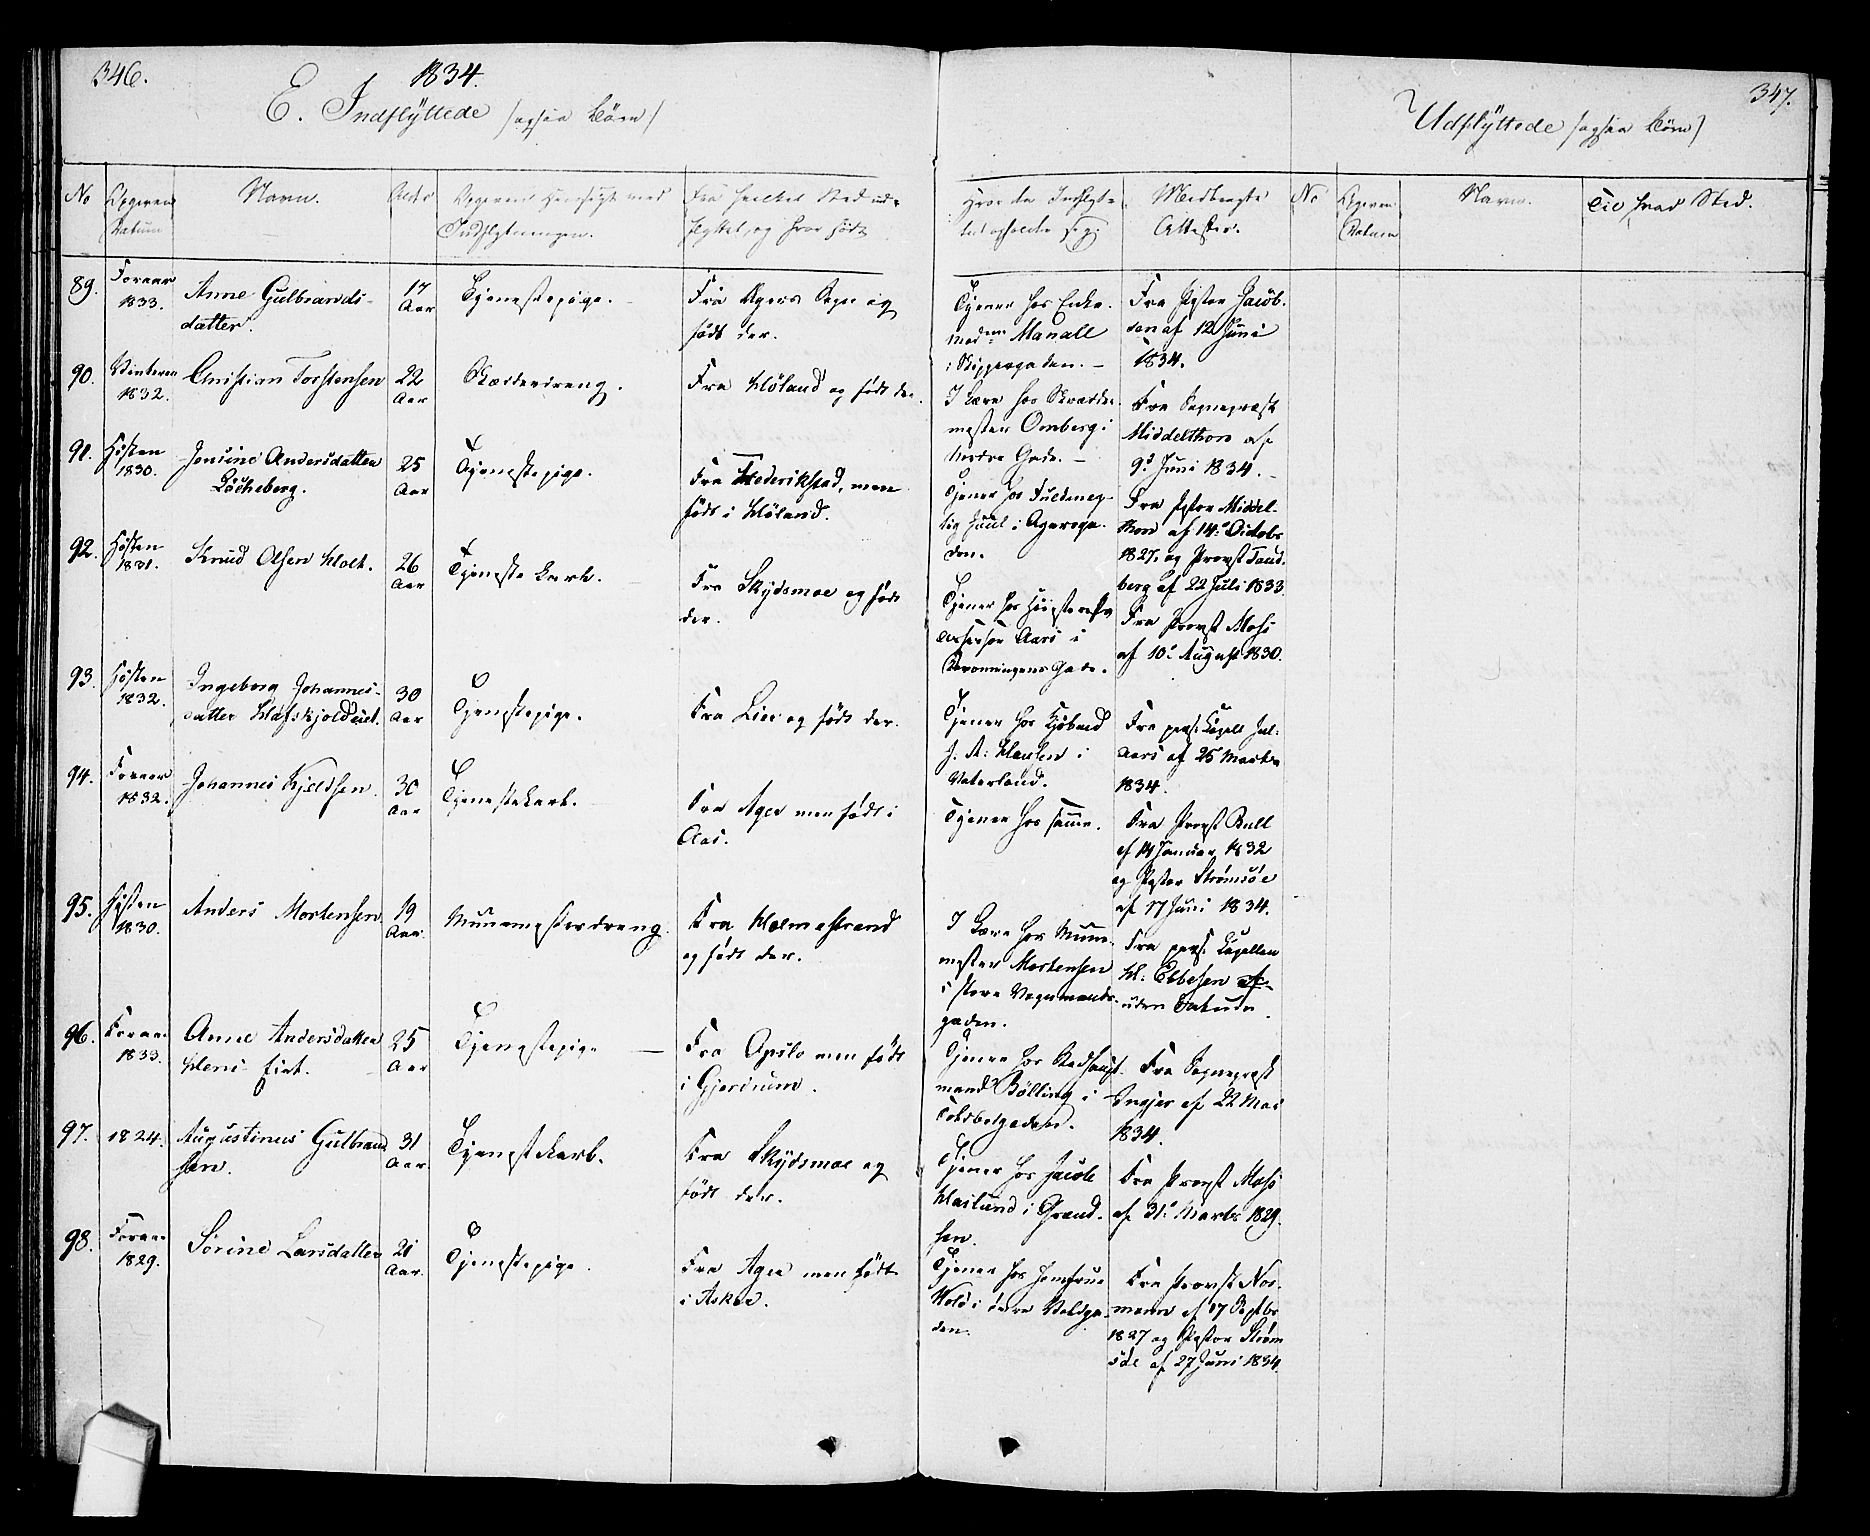 346.
1834.
E. Indflÿttede /ogsaa Börn/
No
Opgiven Datum
Navn.
Alder
Opgivne Hensigt med Indflytningen.
Fra hvilket Sted udflyttet, og hvor født
Hvor den Indflyttede opholder sig.
Medbragte Attester.
89.
Foraar 1833.
Anne Gulbrandsdatter.
17 Aar
Tjenestepige.
Fra Agers Sogn og født der.
Tjener hos Enkemadme Manall i Skippergaden.
Fra Pastor Jacobsen af 12 Juni 1834.
90.
Vinteren 1832.
Christian Torstensen
22 Aar
Fra Höland og født der.
I Lære hos Omberg i Nordre Gade.
Fra Sognepræst Middelthon af 9d Juni 1834.
91.
Høsten 1830.
Jensine Andersdatter Löcheberg.
25 Aar
Tjenestepige.
Fra Frederikstad, men født i Höland.
Tjener hos Fuldmægtig Juul i Agersgaden.
Fra Pastor Middelthon af 14d Octobr 1827, og Provst Tandberg af 22 Juli 1833.
92.
Høsten 1831.
Knud Olsen Holt.
26 Aar
Tjenestekarl.
Fra Skydsmoe og født der.
Tjener hos Assessor Aars i Dronningens Gade.
Fra Provst Mohs af 10d August 1830.
93.
Høsten 1832.
Ingeborg Johannesdatter Hafskjoldeiet.
30 Aar
Tjenestepige.
Fra Lier og født der.
Tjener hos Kjøbmd J. A. Hansen i Vaterland.
Fra pers: Capell Jul: Aars af 25 Marts 1834.
94.
Foraar 1832.
Johannes Kjeldsen
30 Aar
Tjenestekarl.
Fra Ager men født i Aas.
Tjener hos samme.
Fra Provst Bull af 14 Januar 1832 og Pastor Strømsöe af 17 Juni 1834.
95.
Høsten 1830.
Anders Mortensen
19 Aar.
Muurmesterdreng.
Fra Holmestrand og født der.
I Lære hos Muurmester Mortensen i store Vognmandsgaden.
Fra pers: Capellan H: Ebbesen af uden Datum.
96.
Foraar 1833.
Anne Andersdatter Hens-Eiet.
25 Aar
Tjenestepige
Fra Opslo men født i Gjerdrum.
Tjener hos Stadshauptmand Bölling i Toldbodgaden.
Fra Sognepræst Dnejer af 22 Mai 1834.
97.
1824.
Augustinus Gulbrandsen.
31 Aar.
Tjenestekarl.
Fra Skydsmoe og født der.
Tjener hos Jacob Haslund i Grændsen.
Fra Provst Mohs af 31d Marts 1829.
98.
Foraar 1829.
Sörine Larsdatter
21 Aar.
Tjenestepige.
Fra Ager men født i Asker.
Tjener hos Jomfrue Hold i øvre Voldgaden.
Fra Provst Normann af 17 Septbr 1827 og Pastor Strømsöe af 27 Juni 1834.
347.
Udflÿttede /ogsaa Börn/
No
Opgiven Datum
Navn.
Til hvad Sted.